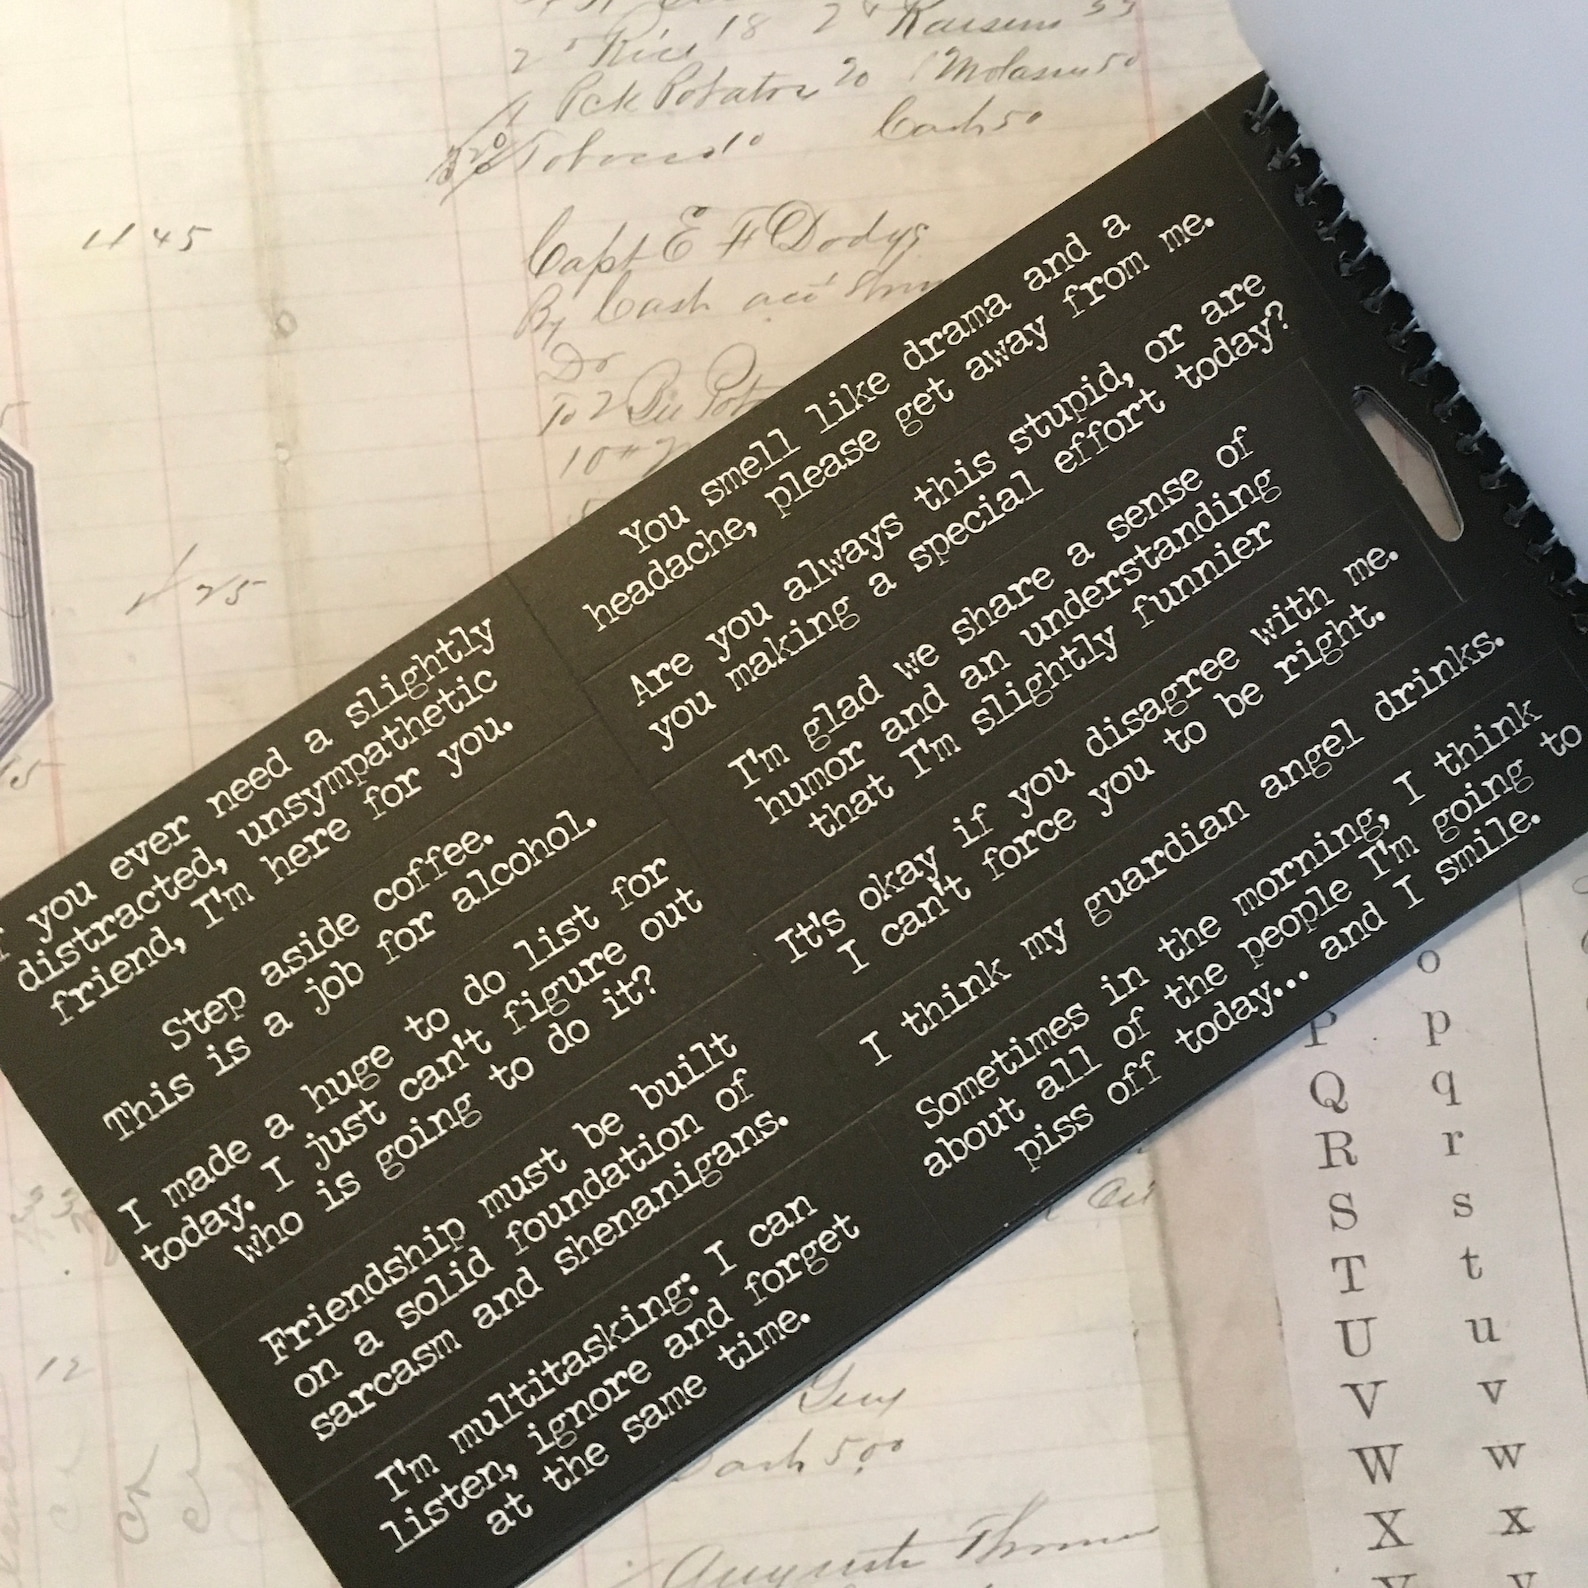 2 Rice 18
Raisens 35
Pck Potatoe 20
Molasses 50
Tobacco 10
Cash 50
45
Capt E F Dodys
By Cash
Do
To 2
25
f you ever need a slightly
distracted, unsympathetic
friend, I'm here for you.
Step aside coffee.
This is a job for alcohol.
I made a huge to do list for
today. I just can't figure out
who is going to do it?
Friendship must be built
on a solid foundation of
sarcasm and shenanigans.
I'm multitasking: I can
listen, ignore and forget
at the same time.
You smell like drama and a
headache, please get away from me.
Are you always this stupid, or are
you making a special effort today?
I'm glad we share a sense of
humor and an understanding
that I'm slightly funnier
It's okay if you disagree with me.
I can't force you to be right.
I think my guardian angel drinks.
Sometimes in the morning, I think
about all of the people I'm going to
piss off today... and I smile.
12
o
P p
Q q
R r
S s
T t
U u
V v
W w
X x